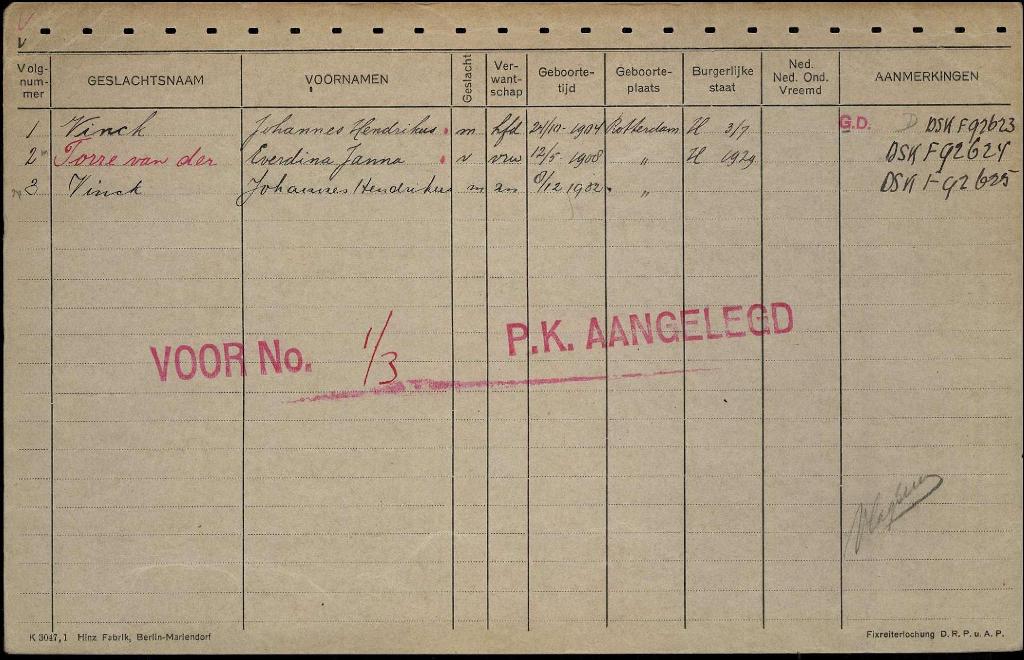 V
V
Volg-num-mer GESLACHTSNAAM VOORNAMEN Geslacht Ver-want-schap Geboorte-tijd Geboorte-plaats Burgerlijke staat Ned. Ned. Ond. Vreemd AANMERKINGEN
1 Vinck Johannes Hendrikus m hfd 24/10-1904 Rotterdam H 3/7 G.D. D DSK F92623
2 Torre van der Everdina Janna v vrw 12/5-1908 " H 1929 DSK F92624
3 Vinck Johannes Hendrikus m zn /12 "  DSK F92625
VOOR No. 1/3 P.K. AANGELEGD
K 3047,1 Hinz Fabrik, Berlin-Mariendorf Fixreiterlochung D. R. P. u. A. P.